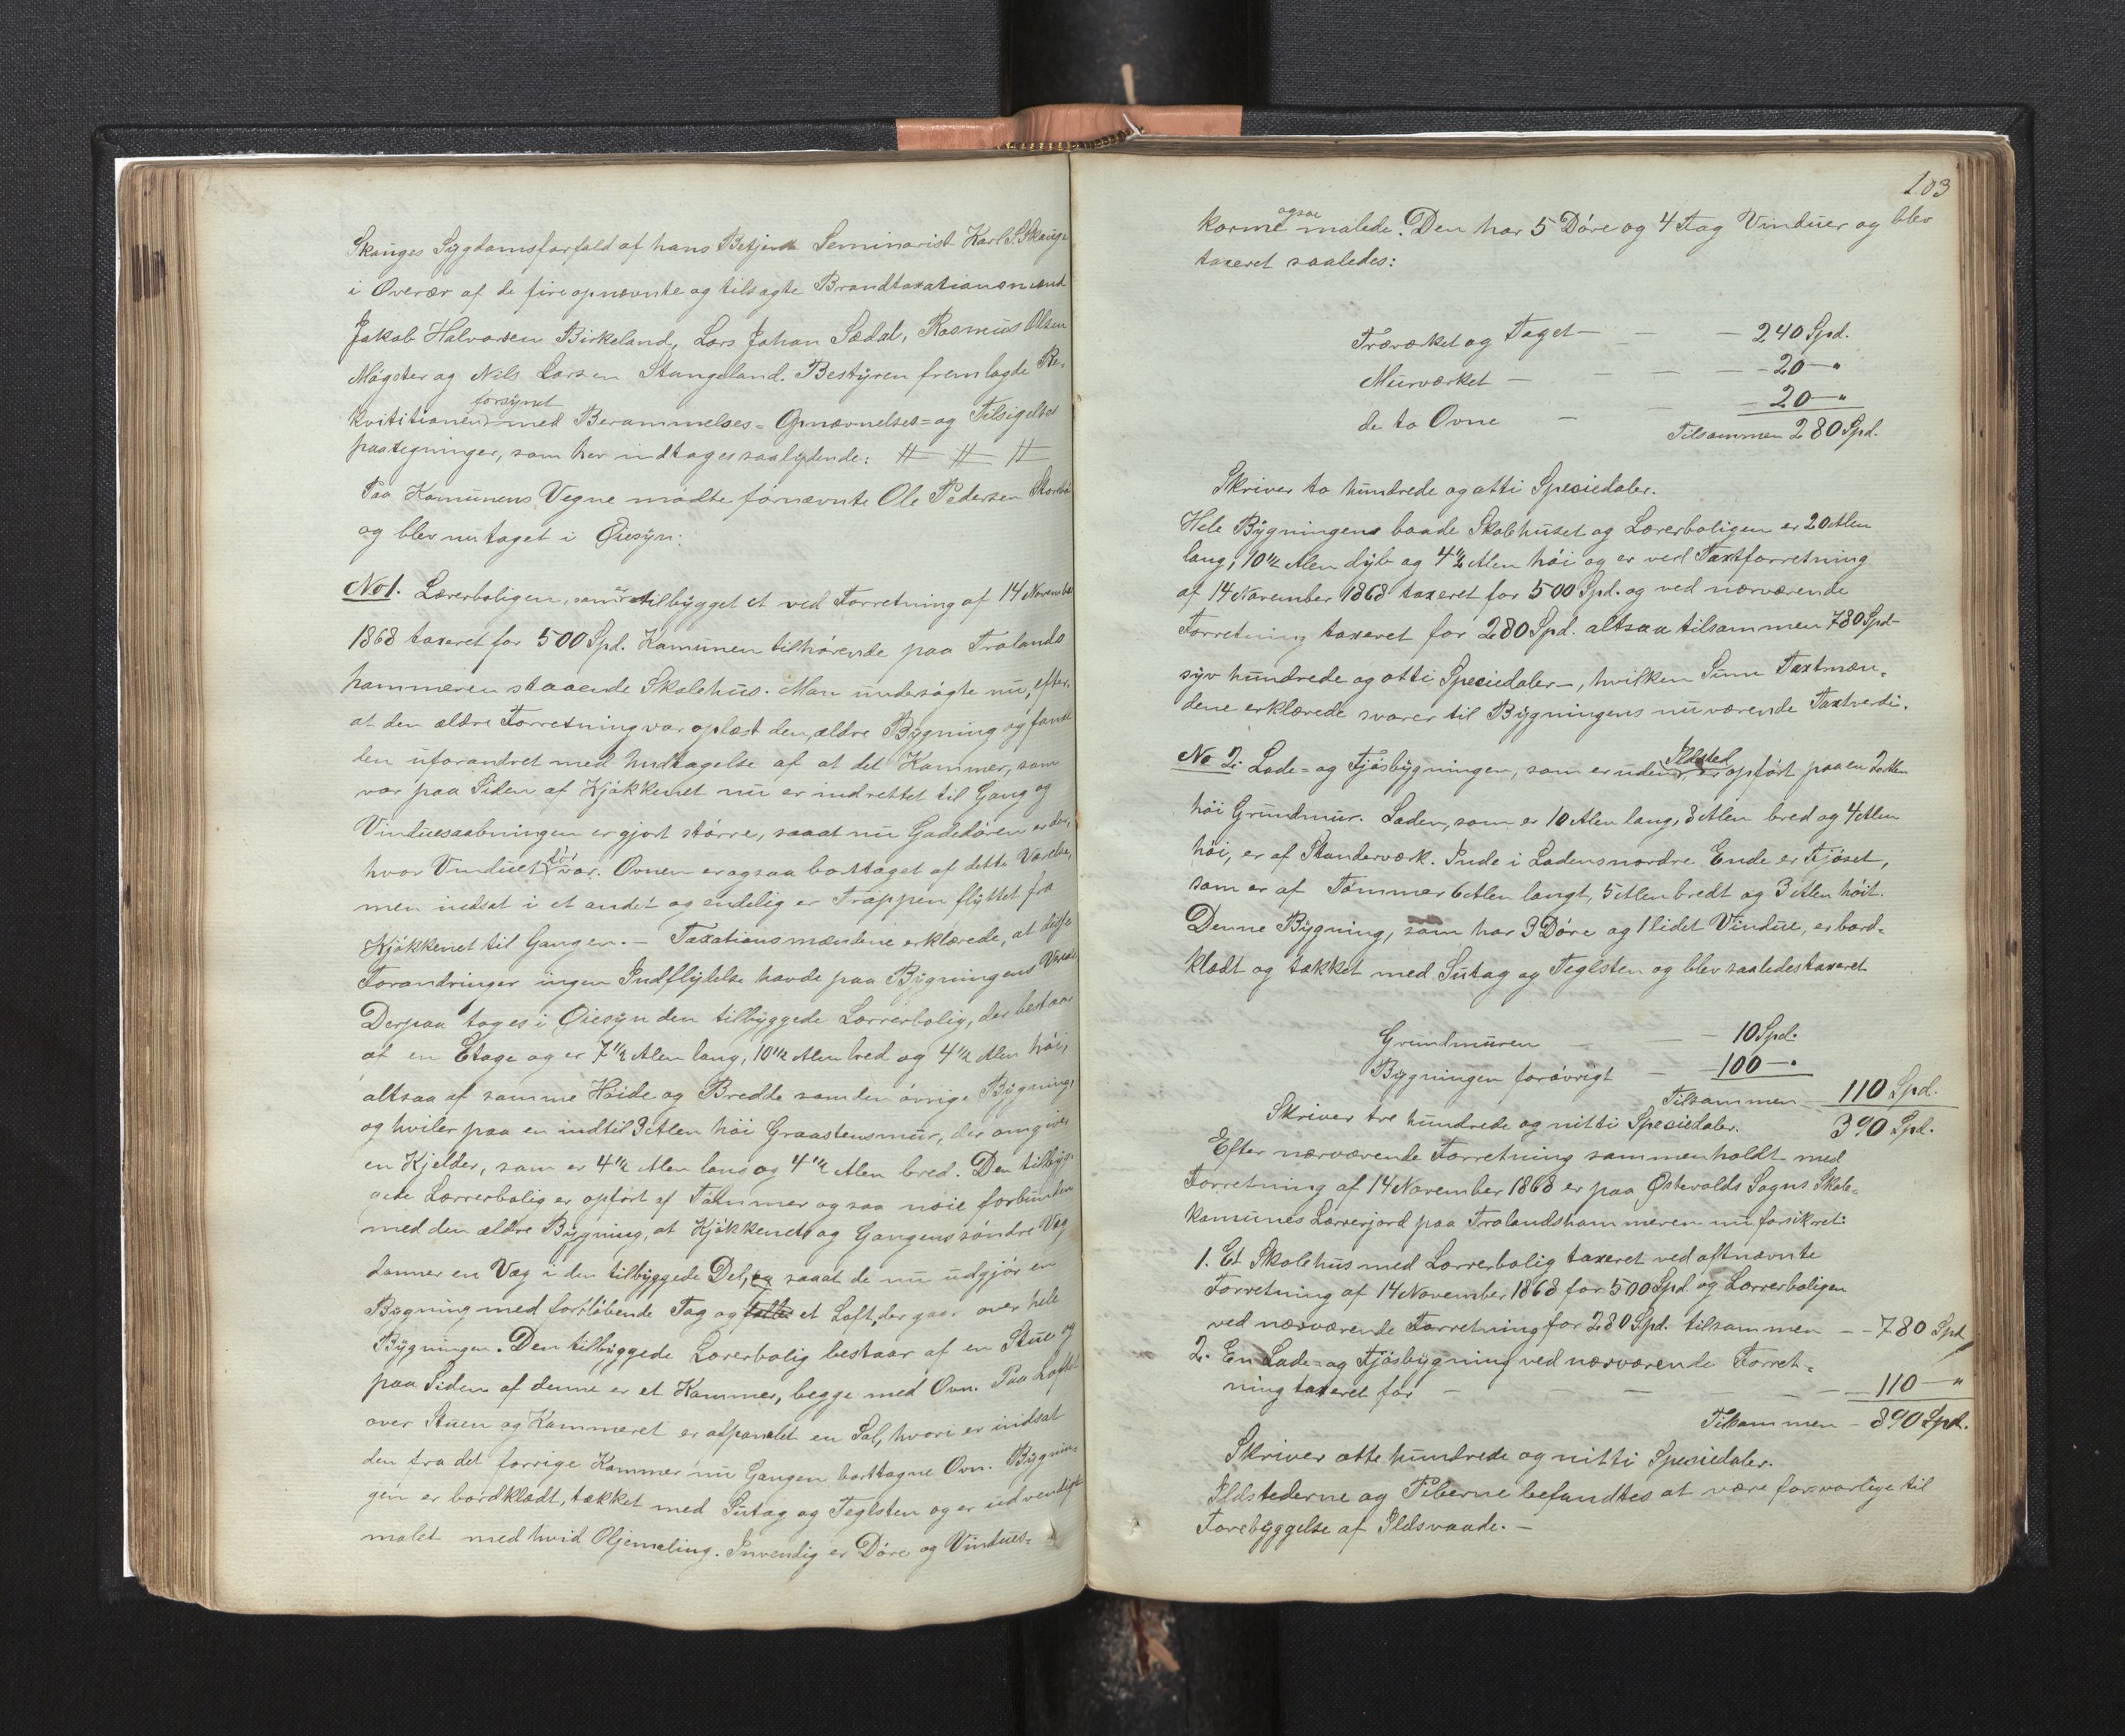 Skauges Sygdomsforfald af hans Betjent Seminarist Karl S. Skauge
i Overvær af de fire opnævnte og tilsagte Brandtaxationsmænd
Jakob Halvorsen Birkeland, Lars Johan Sædal, Rasmus Olsen
Møgster og Nils Larsen Stangeland. Bestyren fremlagde Re-
kvititionen forsynet med Berammelses- Opnævnelses- og Tilsigelses
paategninger, som her indtages saalydende: # # #
Paa Komunens Vegne mødte førnævnte Ole Pedersen
og blev nu taget i Øiesyn:
No 1. Lærerboligen, som er tilbygget et ved Forretning af 14 November
1868 taxeret for 500 Spd. Komunen tilhørende paa Trolands
hammeren staaende Skolehus. Man undersøgte nu, efter
at den ældre Forretning var oplæst den ældre Bygning og fandt
den uforandret med Undtagelse af at det Kammer, som
var paa Siden af Kjøkkenet nu er indrettet til Gang og
Vinduesaabningen er gjort større, saaat nu Gadedøren er der,
hvor Vinduet før var. Ovnen er ogsaa borttaget af dette Værelse,
men indsat i et andet og endelig er Trappen flyttet fra
Kjøkkenet til Gangen. – Taxationsmændene erklærede, at disse
Forandringer ingen Indflydelse havde paa Bygningens Værdi
Derpaa toges i Øiesyn den tilbyggede Lærerbolig, der bestaar
af en Etage og er 7 1/2 Alen lang, 10 1/2 Alen bred og 4 1/2 Alen høi,
altsaa af samme Høide og Bredde som den øvrige Bygning,
og hviler paa en indtil 3 Alen høi Graastensmur, der omgiver
en Kjelder, som er 4 1/2 Alen lang og 4 1/2 Alen bred. Den tilbyg-
gede Lærerbolig er opført af Tømmer og saa nøie forbunden
med den ældre Bygning, at Kjøkkenets og Gangens søndre Væg
danner en Væg i den tilbyggede Del, og saaat de nu udgjør en
Bygning med fortløbende Tag og et Loft, der gaar over hele
Bygningen. Den tilbyggede Lærerbolig bestaar af en Stue og
paa Siden af denne er et Kammer, begge med Ovn. Paa Loftet
over Stuen og Kammeret er afpanelet en Sal, hvori er indsat
den fra det forrige Kammer nu Gangen borttagne Ovn. Bygnin-
gen er bordklædt, tækket med Sutag og Teglsten og er udvendigt
malet med hvid Oljemaling. Invendig er Døre og Vindues-
103
karme ogsaa malede. Den har 5 Døre og 4 Fag Vinduer og blev
taxeret saaledes:
Træværket og Taget – – 240 Spd.
Murværket – – – – 20 – "
de to Ovne – – – 20 – "
Tilsammen 280 Spd.
Skriver to hundrede og otti Speciedaler.
Hele Bygningen baade Skolehuset og Lærerboligen er 20 Alen
lang, 10 1/2 Alen dyb og 4 1/2 Alen høi og er ved Taxtforretning
af 14 November 1868 taxeret for 500 Spd. og ved nærværende
Forretning taxeret for 280 Spd. altsaa tilsammen 780 Spd –
syv hundrede og otti Speciedaler –, hvilken Sum Taxtmæn-
dene erklærede svarer til Bygningens nuværende Taxtverdi.
No 2. Lade- og Fjøsbygningen, som er uden Ildsted er opført paa en 2 Alen
høi Grundmur. Laden, som er 10 Alen lang, 8 Alen bred og 4 Alen
høi, er af Standerværk. Inde i Ladens nordre Ende er Fjøset,
som er af Tømmer 6 Alen langt, 5 Alen bredt og 3 Alen høit.
Denne Bygning, som har 3 Døre og 1 lidet Vindue, er bord-
klædt og tækket med Sutag og Teglsten og blev saaledes taxeret
Grundmuren – – 10 Spd.
Bygningen forøvrigt – 100 – "
Tilsammen – 110 Spd.
Skriver tre hundrede og nitti Speciedaler. 390 Spd.
Efter nærværende Forretning sammenholdt med
Forretning af 14 November 1868 er paa Østevolds Sogns Skole-
komunes Lærerjord paa Trolandshammeren nu forsikret:
1. Et Skolehus med Lærerbolig taxeret ved oftnævnte
Forretning af 14 November 1868 for 500 Spd. og Lærerboligen
ved nærværende Forretning for 280 Spd. tilsammen – – 780 Spd
2. En Lade- og Fjøsbygning ved nærværende Forret-
ning taxeret for – – – – 110 – "
Tilsammen – 890 Spd.
Skriver otte hundrede og nitti Speciedaler.
Ildstederne og Piberne befandtes at være forsvarlige til
Forebyggelse af Ildsvaade. –